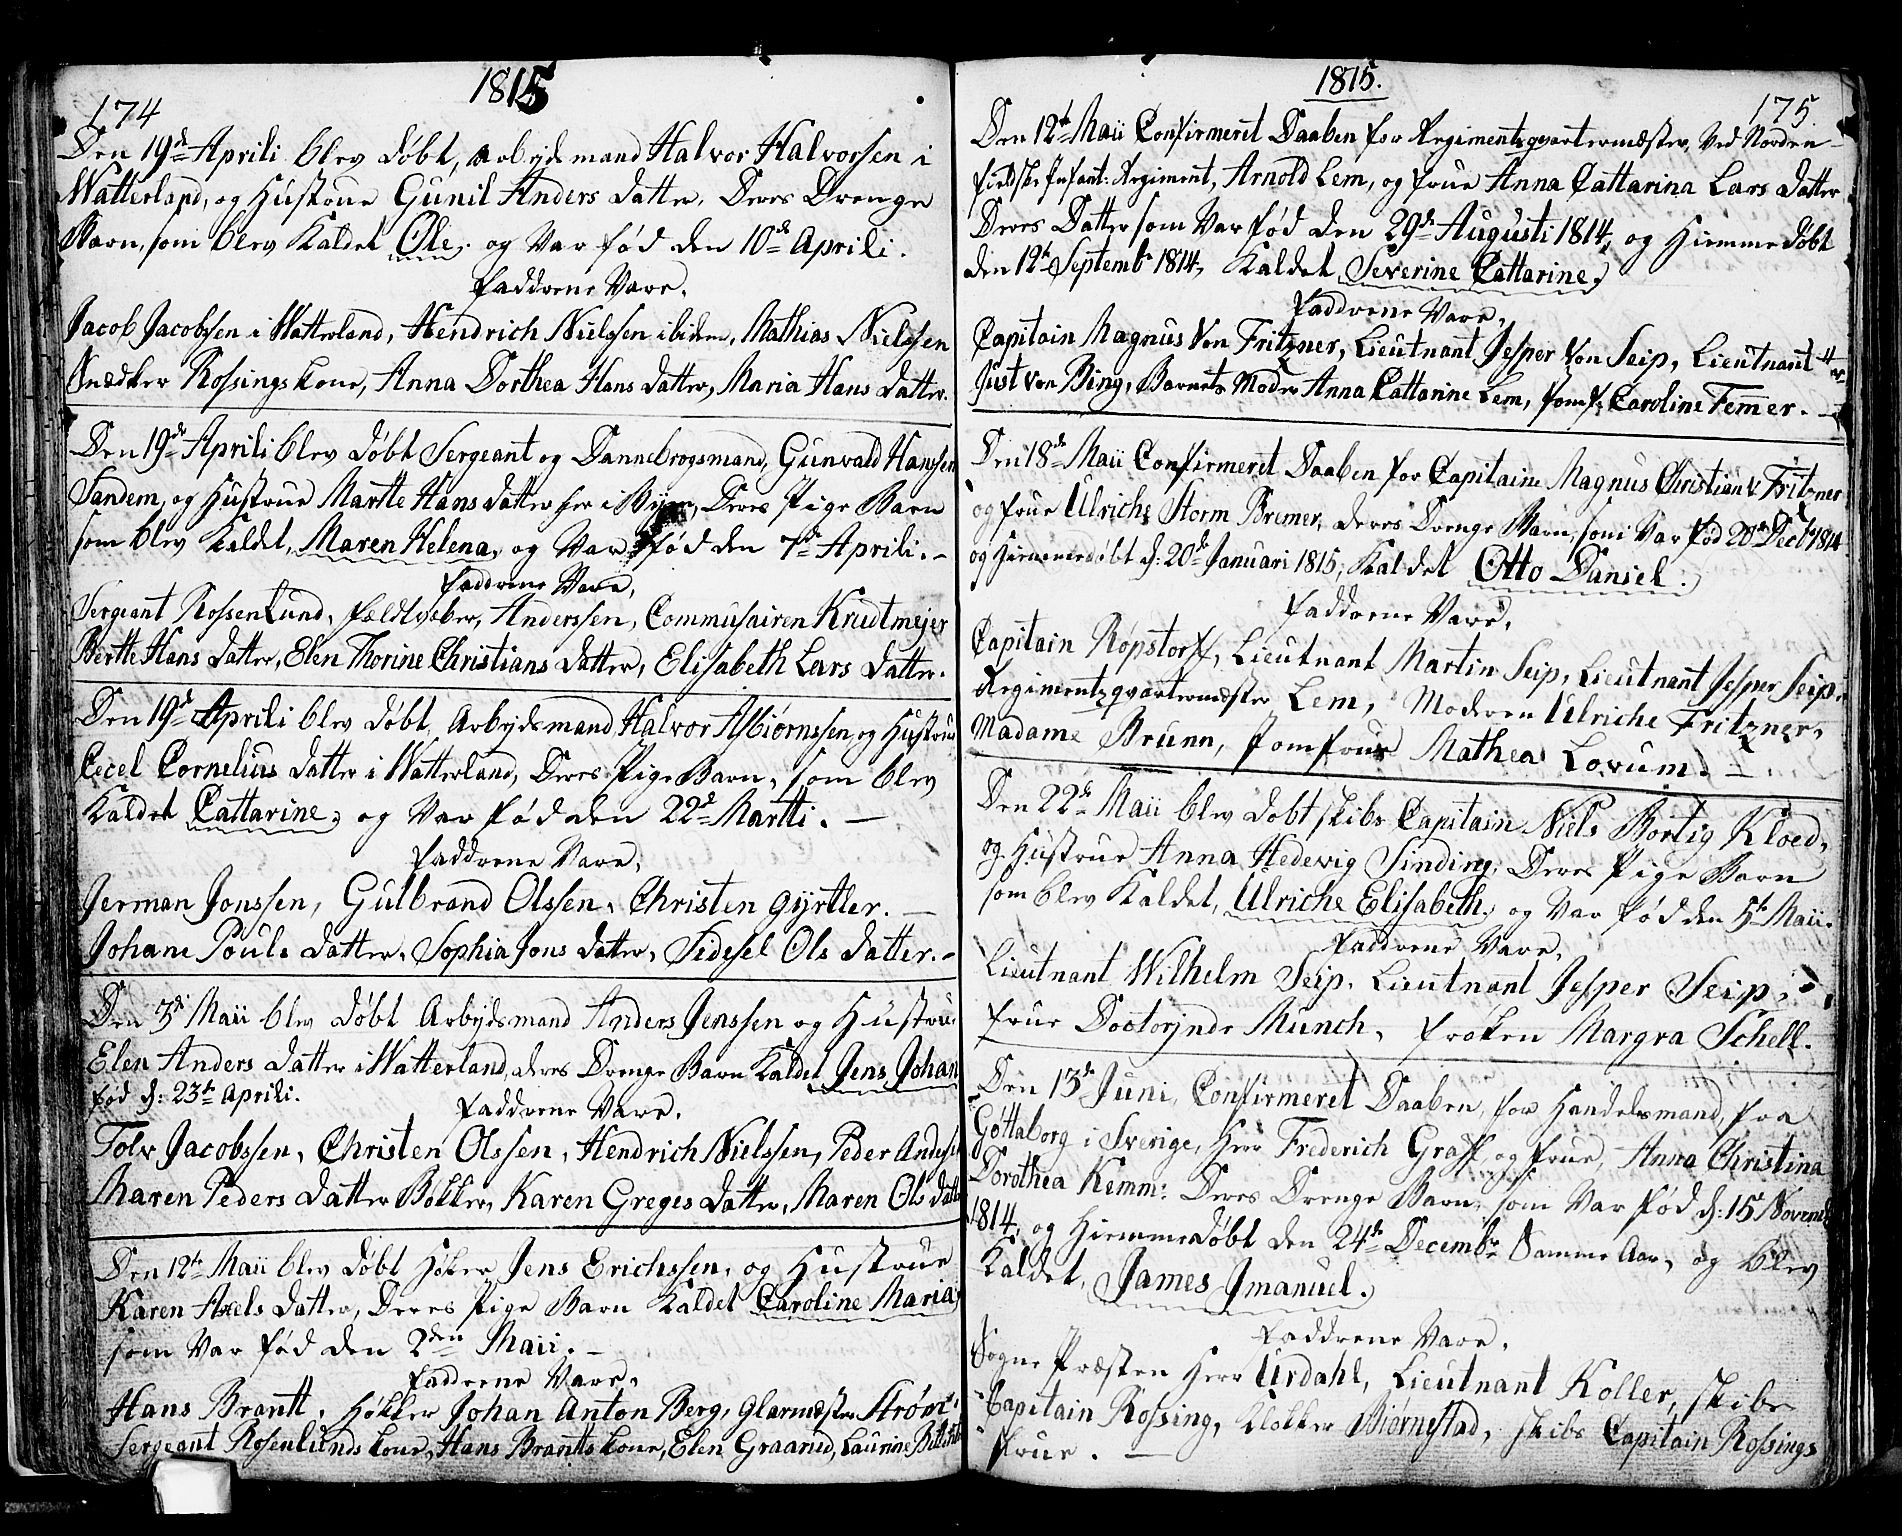 1815
174
Den 19d Aprili blev døbt, arbejdsmand Halvor Halvorssen i
Watterland, og Hustrue Gunil Anders datter, Deres Drenge
Barn, som blev Kaldet Ole, og Var født den 10d Aprili.
Faddrene Vare,
Jacob Jacobssen i Watterland, Hendrich Nielssen ibidem, Mathias Nielssen
Snedker Rossings kone, Anna Dorthea Hans datter, Maria Hans datter.
Den 19de Aprili blev døbt Sergeant og Dannebrogsmand, Gunvald Hanssen
Sandem, og Hustrue Martte Hans datter her i Byen, Deres Pige Barn
som blev Kaldet, Maren Helena, og Var fød den 7d Aprili. –
Faddrene Vare,
Sergeant Rossenlund, Feldtveber, Anderssen, Commusairen Krudtmejer
Bertte Hans datter, Elen Thorine Christians datter, Elisabeth Lars datter.
Den 19d Aprili blev døbt, Arbejdsmand Halvor Asbiørnssen og Hustrue
Cecel Cornelius datter i Watterland, Deres Pige Barn, som blev
Kaldet Cattarine, og Var fød den 22d Martti. –
Faddrene Vare,
Jerman Jonssen, Gulbrand Olssen, Christen gyrtler. –
Johane Pouls datter, Sophia Jons datter, Sidesel Ols datter. –
Den 3di Maii blev døbt Arbejdsmand Anders Jenssen og Hustrue
Elen Anders datter i Watterland, deres Drenge Barn Kaldet Jens Johan
fød d: 23de Aprili.
Faddrene Vare.
Tolv Jacobssen, Christen Olssen, Hendrich Nielssen, Peder Anderss
Maren Peders datter Bøkker, Karen Greges datter, Maren Ols datter
Den 12te Maii blev døbt Høker Jens Erichssen, og Hustrue
Karen Axels datter, Deres Pige Barn Kaldet Caroline Maria
som Var fød den 2den Maii. –
Faddrene Vare,
Hans Brantt, Høkker Johan Anton Berg, Glarmester Strøm
Sergeant Rosenlunds kone, Hans Brantts kone, Elen Graarud, Laurine
1815.
175.
Den 12te Maii Confirmeret Daaben for Regimentsqvartermæster, Ved Norden-
fieldske Infant: Regiment, Arnold Lem, og frue Anna Cattarina Lars datter
Deres Datter som Var fød den 29de Augusti 1814, og Hiemmedøbt
den 12te Septembr 1814, Kaldet Severine Cattarine.
Faddrene Vare,
Capitain Magnus Von Fritzner, Lieutnant Jesper Von Seip, Lieutnant
Just von Bing, Barnets Moder Anna Cattarine Lem, Jomf: Caroline Femmer. –
Den 18de Maii Confirmeret Daaben for Capitaine Magnus Christian V Fritzner
og frue Ulriche Storm Bremer, deres Drenge Barn, som Var fød 20de Decbr 1814
og Hiemmedøbt d: 20de Januari 1815, Kaldet Otto Daniel.
Faddrene Vare,
Capitain Røpstorf, Lieutnant Martin Seip, Lieutnant Jesper Seip.
Regimentzqvartermæster Lem, Moderen Ulriche Fritzner,
Madame Brunn, Jomfrue Mathea Lovum. –
Den 22de Maii blev døbt skibs Capitain Niels Bortig Kloed,
og Hustrue Anna Hedevig Sinding, Deres Pige Barn
som blev Kaldet, Ulriche Elisabeth, og Var fød den 5te Maii.
Faddrene Vare,
Lieutnant Wilhelm Seip, Lieutnant Jesper Seip,
Frue Doctorinde Munch, frøken Margra Schell.
Den 13de Juni, Confirmeret Daaben, for Handelsmand, fra
Gøttaborg i Sverige, Herr Frederich Graff, og frue, Anna Christina
Dorothea Kemm: Deres Drenge Barn, som Var fød d: 15 Novemb
1814, og Hiemmedøbt den 24de Decembr Samme Aar, og blev
Kaldet, James Imanuel.
Faddrene Vare,
Sogne Præsten Herr Urdahl, Lieutnant Koller, skibs
Capitain Rossing, Klokker Biørnstad, skibs Capitain Rossings
frue. –